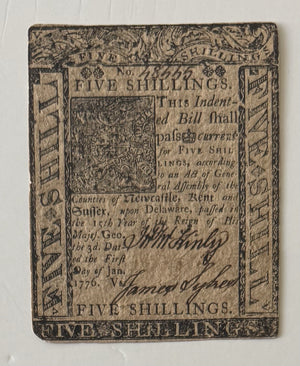 FIVE SHILLINGS
No. 48665
FIVE SHILLINGS.
THIS Indent-
ed Bill shall
pass current
for FIVE SHIL
LINGS, according
to an Act of Gene-
ral Assembly of the
Counties of Newcastle, Kent and
Sussex, upon Delaware, passed in
the 15th Year of the Reign of His
Majest. Geo.
the 3d. Dat-
ed the First
Day of Jan.
1776. Vs.
James Sykes
FIVE SHILLINGS.
FIVE SHILLINGS
FIVE SHILL
FIVE SHILL